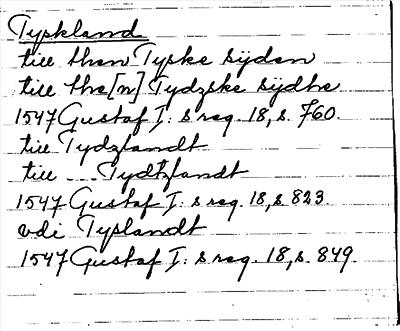 Tyskland
till then Tyske sijden
till the[n] Tydzske sijdhe
1547 Gustaf I:s reg. 18, s. 760.
till Tydzlandt
till ... Tydtzlandt
1547 Gustaf I:s reg. 18, s. 823.
vdi Tyslandt
1547 Gustaf I:s reg. 18, s. 849.